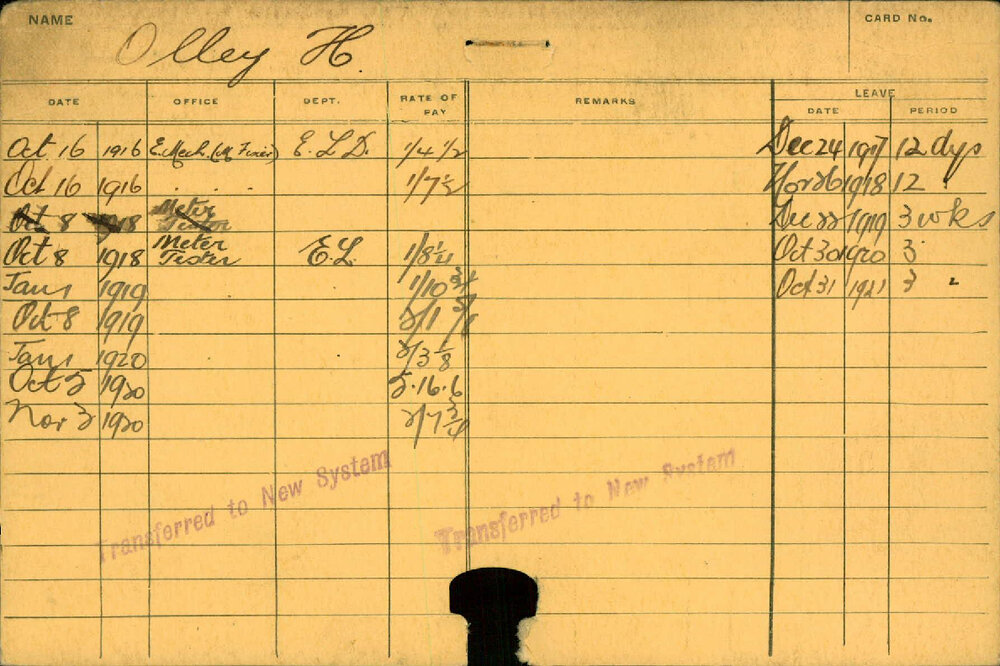 NAME
CARD No.
Olley H.
DATE OFFICE DEPT. RATE OF PAY REMARKS LEAVE
DATE PERIOD
Oct 16 1916 E. Mech. (M Fixer) E. L D. 1/4 1/2 Dec 24 1917 12 dys
Oct 16 1916 . . . . 1/7 1/2 1918 12 "
Oct 8 1918 Meter 1919 3 wks
Oct 8 1918 Meter E.L. 1/8 1/4 Oct 30 1920 3
Jan 1 1919 1/10 3/4 Oct 31 1921 3 "
Oct 8 1919 2/1
Jan 1 1920 2/3 1/8
Oct 5 1920 5.16.6
Nov 3 1920 2/7 3/4
Transferred to New System
Transferred to New System